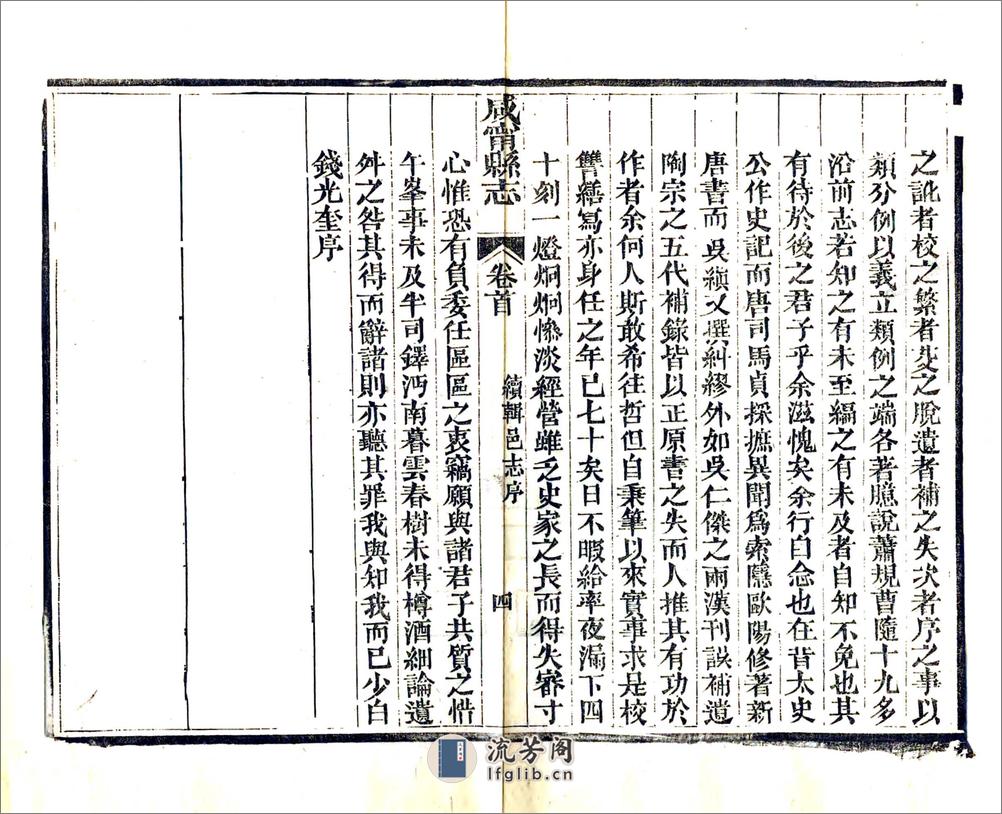 之訛者校之繁者芟之脫遺者補之失次者序之事以
類分例以義立類例之端各著臆說蕭規曹隨十九多
沿前志若知之有未至編之有未及者自知不免也其
有待於後之君子乎余滋愧矣余行曰念也在昔太史
公作史記而唐司馬貞採摭異聞爲索隱歐陽修著新
唐書而吳縝又撰糾繆外如吳仁傑之兩漢刊誤補遺
陶宗之五代補錄皆以正原書之失而人推其有功於
作者余何人斯敢希往哲但自秉筆以來實事求是校
讐繕寫亦身任之年已七十矣日不暇給率夜漏下四
十刻一燈炯炯慘淡經營雖乏史家之長而得失審寸
咸甯縣志 卷首 續輯邑志序 四
心惟恐有負委任區區之衷竊願與諸君子共質之惜
午峯事未及半司鐸沔南暮雲春樹未得樽酒細論遺
舛之咎其得而辭諸則亦聽其罪我與知我而已少白
錢光奎序
流芳阁
lfglib.cn